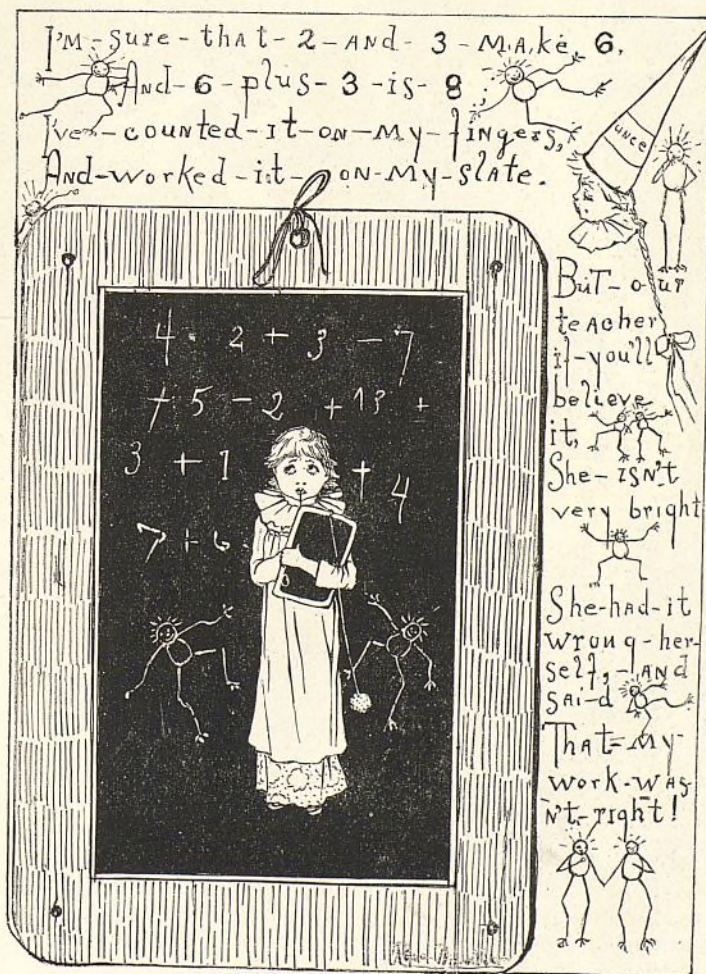 I'M-sure-that-2-AND-3-MAke 6,
AND-6-plus-3-is-8;
I've-counted-it-on-My-fingers,
AND-worked-it-ON-My-slate.
UNCE
BuT-our
teAcher
if-you'll
believe
it,
She-ISN't
very bright
She-had-it
wrong-her-
self,-AND
SAi-d
That-My-
work-was-
N't-right!
4 2 + 3 - 7
+ 5 - 2 + 13 +
3 + 1 + 4
7 + 6